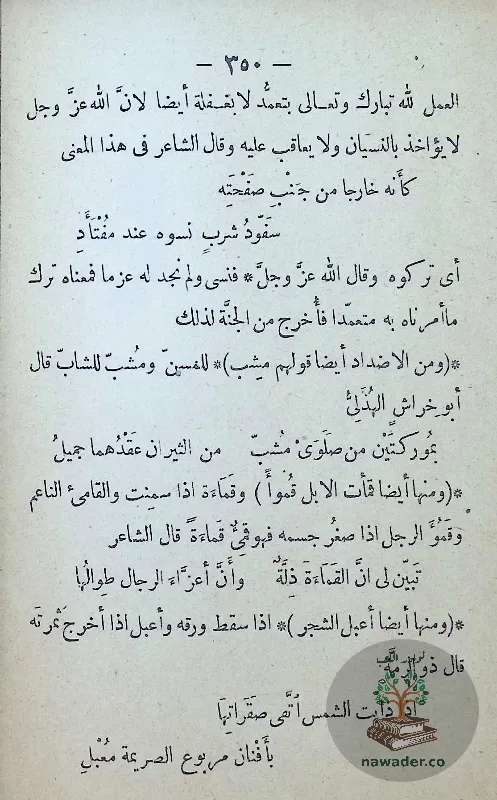 — ٣٥٠ —
العمل لله تبارك وتعالى بتعمُّد لا بغفلة أيضا لانَّ الله عزَّ وجل
لا يؤاخذ بالنسيان ولا يعاقب عليه وقال الشاعر فى هذا المعنى
كأنه خارجا من جَنْبِ صَفْحَتِه
سَفّودُ شربٍ نسوه عند مفْتَأَدِ
أى تركوه وقال الله عزَّ وجلَّ * فنسى ولم نجد له عزما فمعناه ترك
ما أمرناه به متعمّدا فأُخرج من الجنَّة لذلك
*(ومن الاضداد أيضا قولهم مشِب)* للمُسنّ ومُشبّ للشابّ قال
أبو خِراشٍ الهُذَلىُّ
بمُوركتَيْن من صلَوَىْ مُشبّ من الثيران عَقْدُهما جميلُ
*(ومنها أيضا قمأت الابل قُموأً) وقماءة اذا سمِنت والقامئ الناعم
وقمُؤَ الرجل اذا صغُر جسمه فهو قمِئٌ قماءةً قال الشاعر
تَبيّن لى انَّ القمَاءةَ ذِلَّةٌ وأنَّ أعزَّاءَ الرجال طِوالُها
*(ومنها أيضا أعبل الشجر)* اذا سقط ورقه وأعبل اذا أخرج ثمرته
قال ذو الرمَّة
اذا ذابت الشمس اتَّقى صقَرَاتِها
بأَفْنان مربوع الصريمة مُعْبِلِ
nawader.co